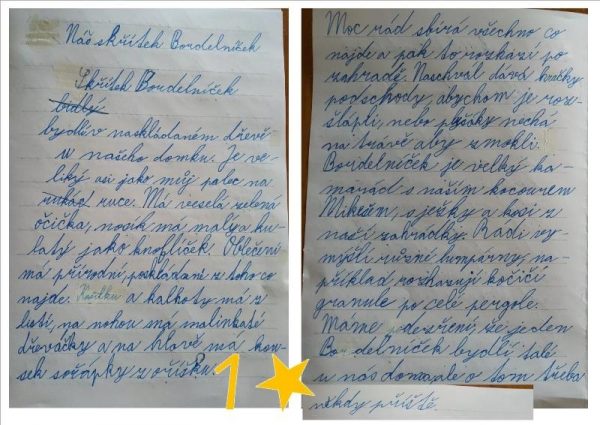 Náš skřítek Bordelníček
Skřítek Bordelníček
bydlý
bydlí v naskládaném dřevě
u našeho domku. Je ve-
liký asi jako můj palec na
rukách ruce. Má veselá zelená
očička, nosík má malý a ku-
latý jako knoflíček. Oblečení
má přírodní, poskládané z toho co
najde. Košilku a kalhoty má z
listí, na nohou má malinkaté
dřeváčky a na hlavě má kou-
sek sořápky z oříšku.
1
Moc rád sbírá všechno co
najde a pak to rozhází po
zahradě. Naschvál dává kračky
pod schody abychom je roz-
šlápli, nebo pyšáky nechá
na trávě aby zmokli.
Bordelníček je velký ka-
marád s naším kocourem
Mikešem, s ježky a kosi z
naší zahrádky. Rádi vy-
mýšlí různé lumpárny, na-
příklad rozhazují kočičí
granule po celé pergole.
Máme podezření, že jeden
Bordelníček bydlí také
u nás doma, ale o tom třeba
někdy příště.